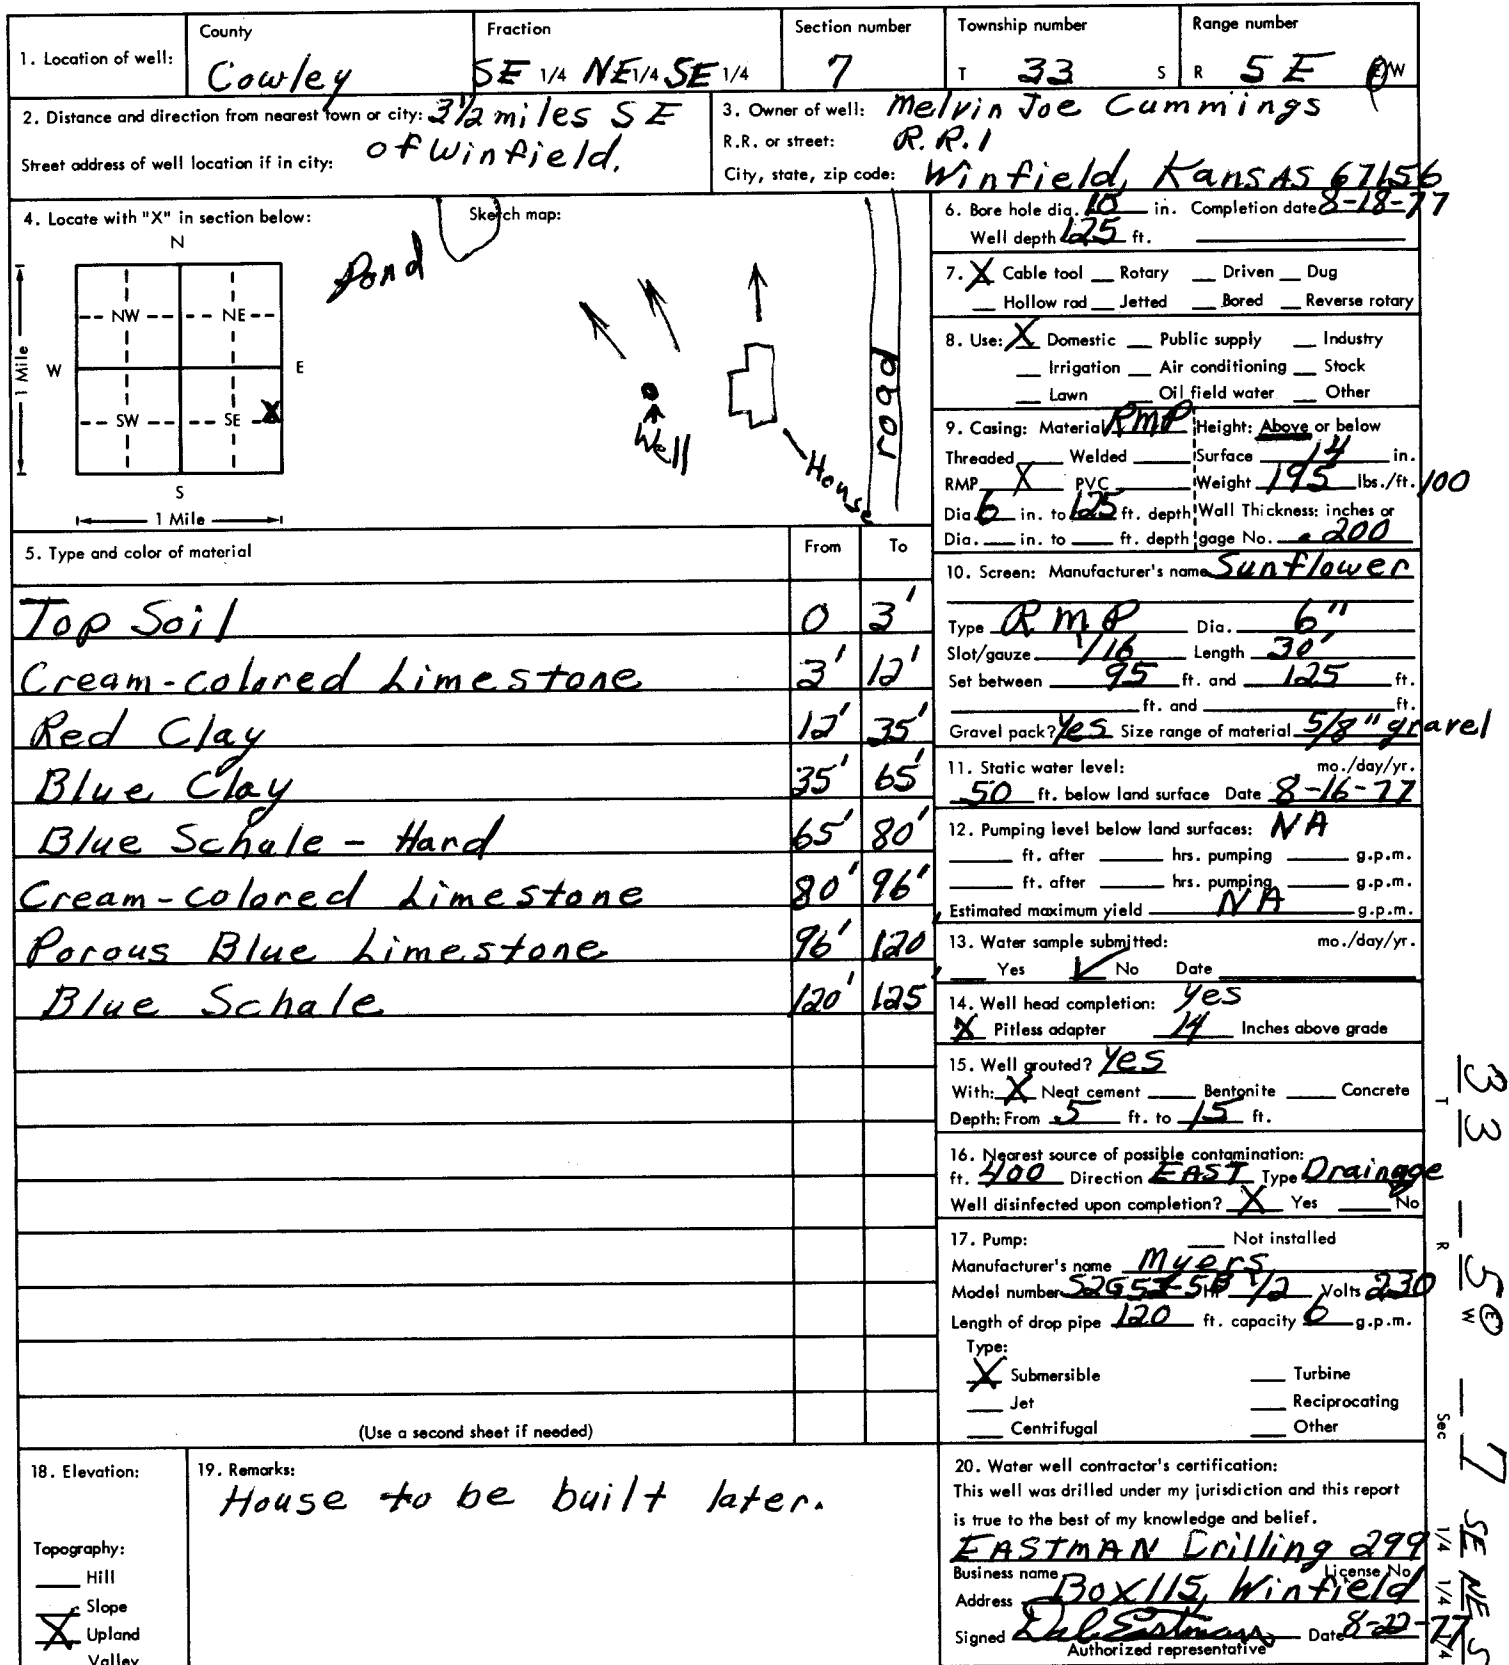 1. Location of well: County Cowley Fraction SE 1/4 NE 1/4 SE 1/4 Section number 7 Township number T 33 S Range number R 5 E E/W
2. Distance and direction from nearest town or city: 3 1/2 miles S E of Winfield.
Street address of well location if in city:
3. Owner of well: Melvin Joe Cummings
R.R. or street: R.R. 1
City, state, zip code: Winfield, Kansas 67156
4. Locate with "X" in section below:
N
NW NE
W E
SW SE X
S
1 Mile
1 Mile
Sketch map:
Pond
Well
House
road
5. Type and color of material From To
Top Soil 0 3'
Cream-colored Limestone 3' 12'
Red Clay 12' 35'
Blue Clay 35' 65'
Blue Schale - Hard 65' 80'
Cream-colored Limestone 80' 96'
Porous Blue Limestone 96' 120
Blue Schale 120' 125
(Use a second sheet if needed)
6. Bore hole dia. 10 in. Completion date 8-18-77
Well depth 125 ft.
7. X Cable tool Rotary Driven Dug
Hollow rod Jetted Bored Reverse rotary
8. Use: X Domestic Public supply Industry
Irrigation Air conditioning Stock
Lawn Oil field water Other
9. Casing: Material RMP Height: Above or below
Threaded Welded Surface 14 in.
RMP X PVC Weight 195 lbs./ft. /100
Dia. 6 in. to 125 ft. depth Wall Thickness: inches or
Dia. in. to ft. depth gage No. .200
10. Screen: Manufacturer's name Sunflower
Type RMP Dia. 6"
Slot/gauze 1/16 Length 30'
Set between 95 ft. and 125 ft.
ft. and ft.
Gravel pack? Yes Size range of material 5/8" gravel
11. Static water level: mo./day/yr.
50 ft. below land surface Date 8-16-77
12. Pumping level below land surfaces: NA
ft. after hrs. pumping g.p.m.
ft. after hrs. pumping g.p.m.
Estimated maximum yield NA g.p.m.
13. Water sample submitted: mo./day/yr.
Yes ✓ No Date
14. Well head completion: yes
X Pitless adapter 14 Inches above grade
15. Well grouted? Yes
With: X Neat cement Bentonite Concrete
Depth: From 5 ft. to 15 ft.
16. Nearest source of possible contamination:
ft. 400 Direction EAST Type Drainage
Well disinfected upon completion? X Yes No
17. Pump: Not installed
Manufacturer's name Myers
Model number HP 1/2 Volts 230
Length of drop pipe 120 ft. capacity 6 g.p.m.
Type:
X Submersible Turbine
Jet Reciprocating
Centrifugal Other
18. Elevation:
Topography:
Hill
Slope
X Upland
Valley
19. Remarks:
House to be built later.
20. Water well contractor's certification:
This well was drilled under my jurisdiction and this report
is true to the best of my knowledge and belief.
EASTMAN Drilling 299
Business name License No.
Address Box 115, Winfield
Signed Eastman Date 8-22-77
Authorized representative
T 33 R 5 E W Sec 7 SE 1/4 NE 1/4 S 1/4